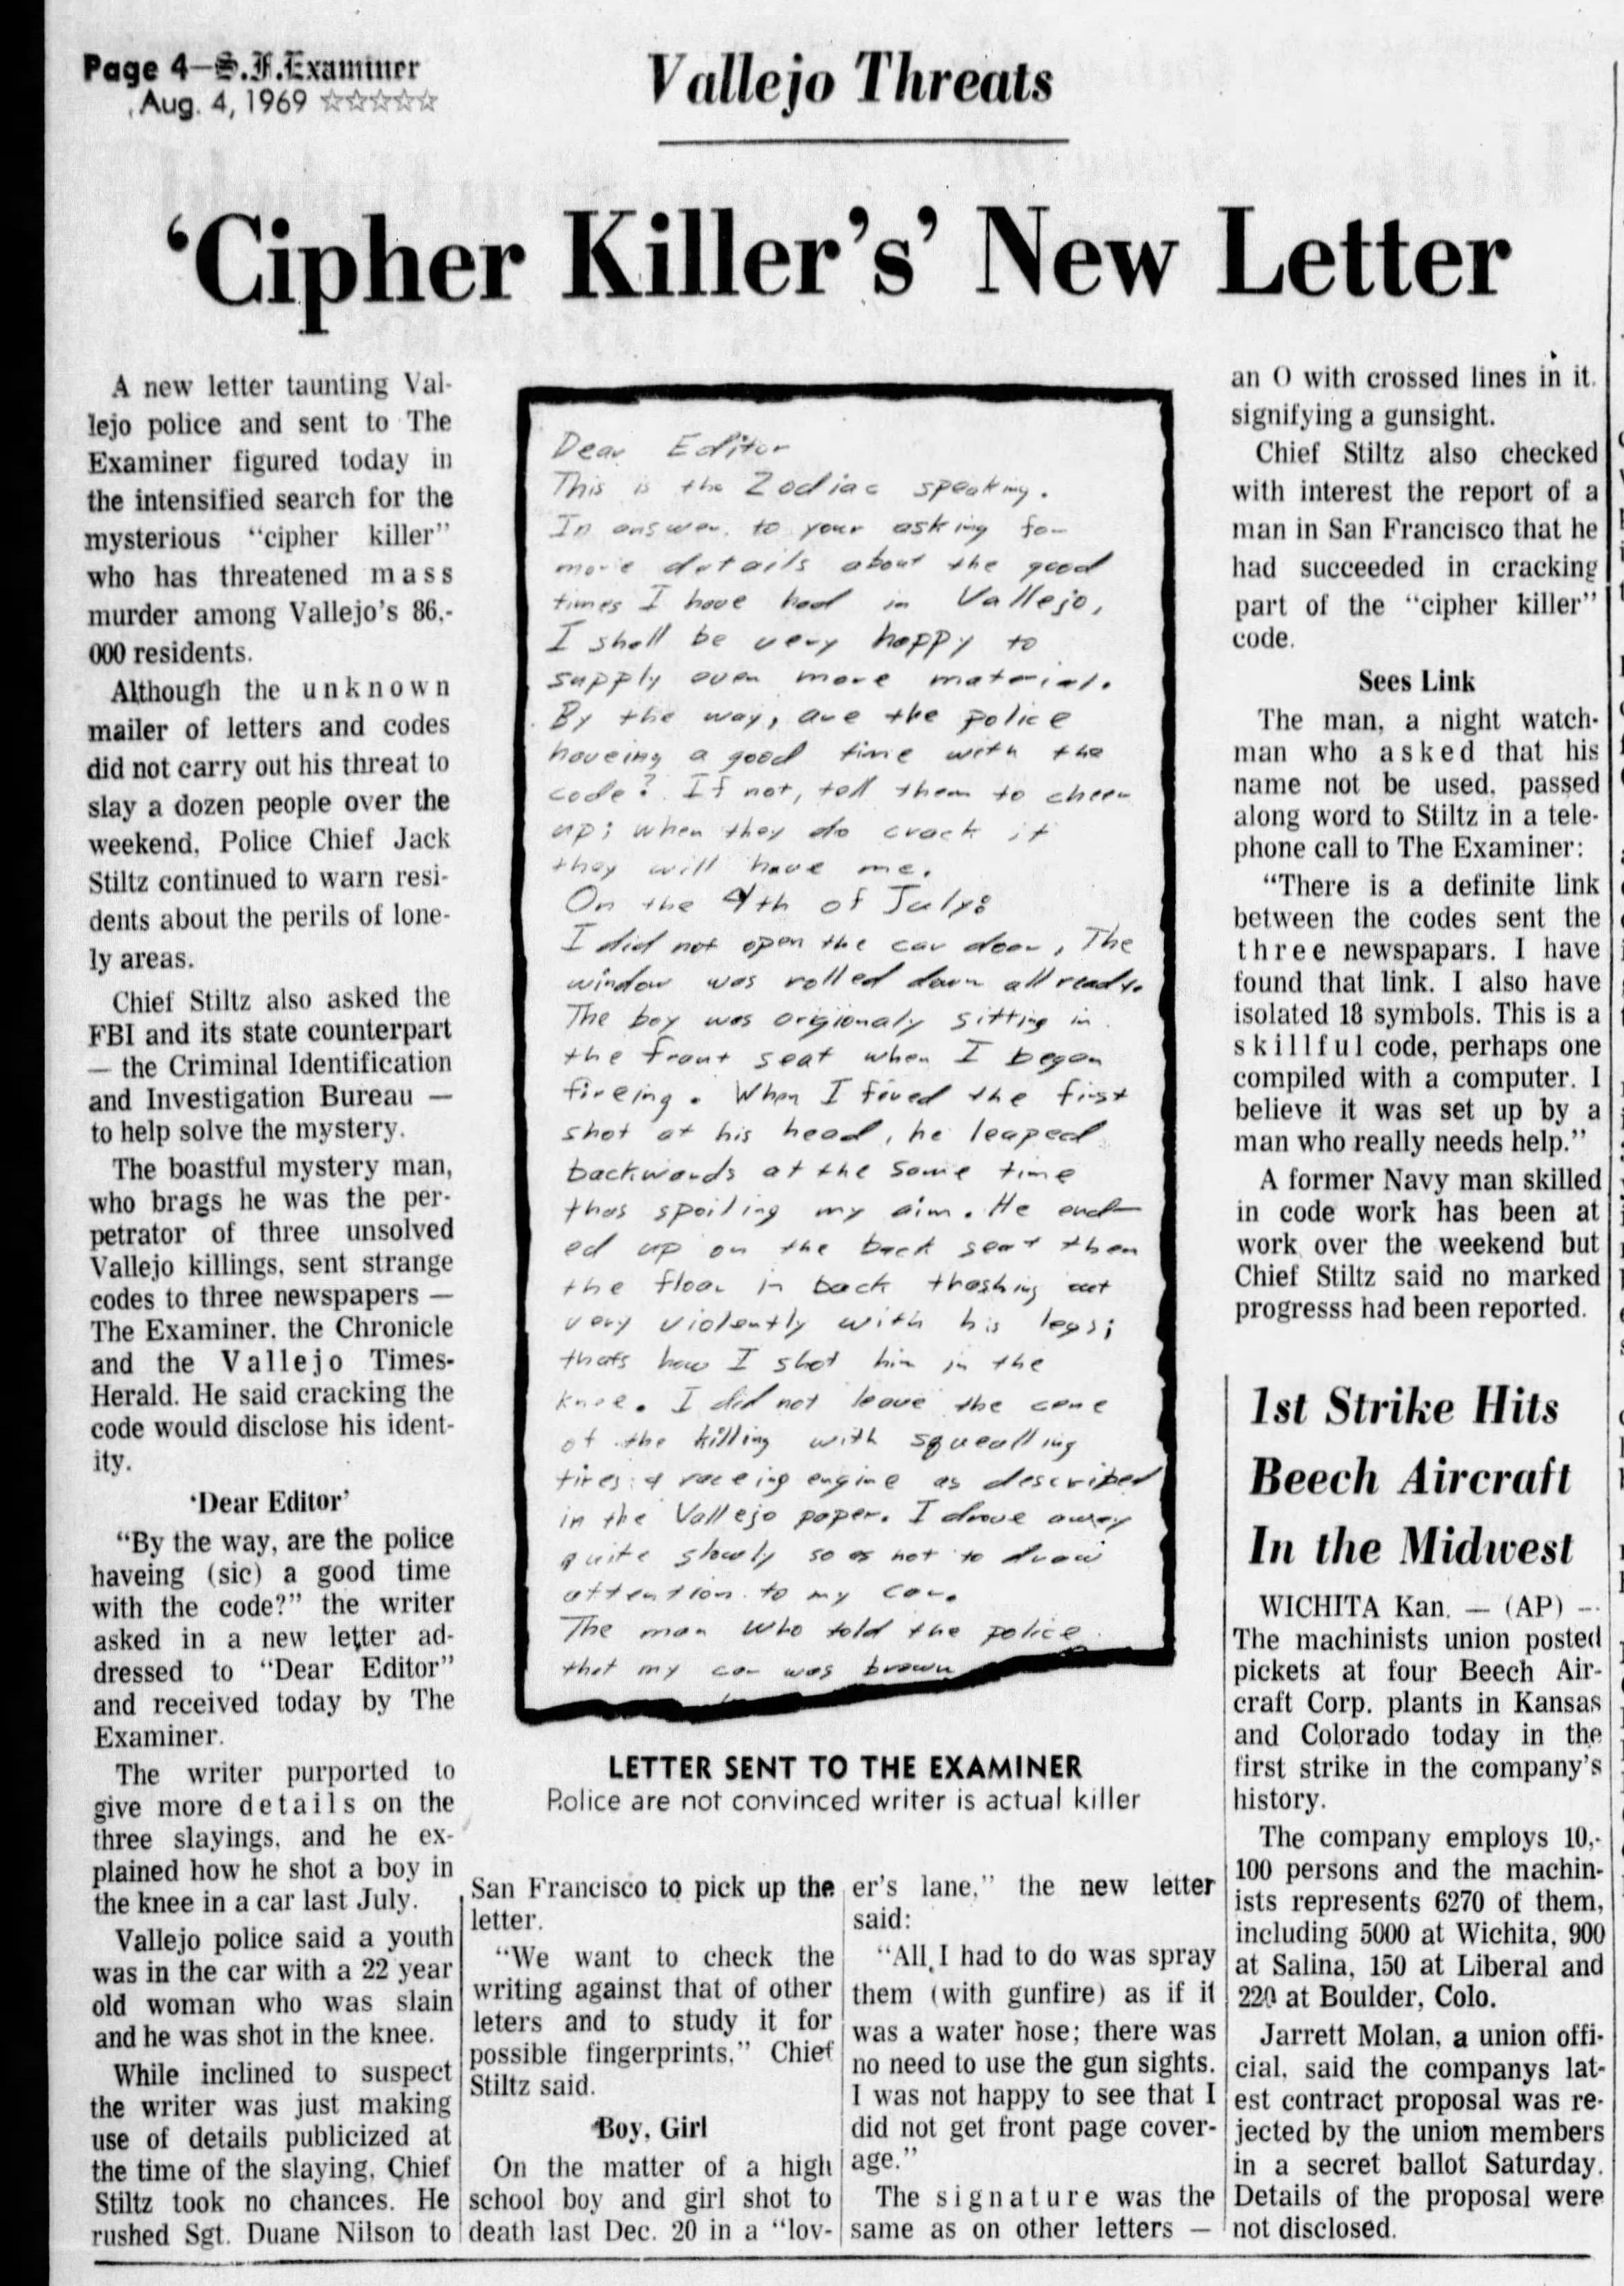 Page 4—S.F.Examiner
Aug. 4, 1969 ☆☆☆☆☆
Vallejo Threats
‘Cipher Killer’s’ New Letter
A new letter taunting Val-
lejo police and sent to The
Examiner figured today in
the intensified search for the
mysterious “cipher killer”
who has threatened mass
murder among Vallejo’s 86,-
000 residents.
Although the unknown
mailer of letters and codes
did not carry out his threat to
slay a dozen people over the
weekend, Police Chief Jack
Stiltz continued to warn resi-
dents about the perils of lone-
ly areas.
Chief Stiltz also asked the
FBI and its state counterpart
— the Criminal Identification
and Investigation Bureau —
to help solve the mystery.
The boastful mystery man,
who brags he was the per-
petrator of three unsolved
Vallejo killings, sent strange
codes to three newspapers —
The Examiner, the Chronicle
and the Vallejo Times-
Herald. He said cracking the
code would disclose his ident-
ity.
‘Dear Editor’
“By the way, are the police
haveing (sic) a good time
with the code?” the writer
asked in a new letter ad-
dressed to “Dear Editor”
and received today by The
Examiner.
The writer purported to
give more details on the
three slayings, and he ex-
plained how he shot a boy in
the knee in a car last July.
Vallejo police said a youth
was in the car with a 22 year
old woman who was slain
and he was shot in the knee.
While inclined to suspect
the writer was just making
use of details publicized at
the time of the slaying, Chief
Stiltz took no chances. He
rushed Sgt. Duane Nilson to
Dear Editor
This is the Zodiac speaking.
In answer to your asking for
more details about the good
times I have had in Vallejo,
I shall be very happy to
supply even more material.
By the way, are the police
haveing a good time with the
code? If not, tell them to cheer
up; when they do crack it
they will have me.
On the 4th of July:
I did not open the car door, The
window was rolled down all ready.
The boy was origionaly sitting in
the front seat when I began
fireing. When I fired the first
shot at his head, he leaped
backwards at the same time
thus spoiling my aim. He end-
ed up on the back seat then
the floor in back thrashing out
very violently with his legs;
thats how I shot him in the
knee. I did not leave the cene
of the killing with squealling
tires & raceing engine as described
in the Vallejo paper. I drove away
quite slowly so as not to draw
attention to my car.
The man who told the police
that my car was brown
LETTER SENT TO THE EXAMINER
Police are not convinced writer is actual killer
San Francisco to pick up the
letter.
“We want to check the
writing against that of other
leters and to study it for
possible fingerprints,” Chief
Stiltz said.
Boy, Girl
On the matter of a high
school boy and girl shot to
death last Dec. 20 in a “lov-
er’s lane,” the new letter
said:
“All I had to do was spray
them (with gunfire) as if it
was a water hose; there was
no need to use the gun sights.
I was not happy to see that I
did not get front page cover-
age.”
The signature was the
same as on other letters —
an O with crossed lines in it,
signifying a gunsight.
Chief Stiltz also checked
with interest the report of a
man in San Francisco that he
had succeeded in cracking
part of the “cipher killer”
code.
Sees Link
The man, a night watch-
man who asked that his
name not be used, passed
along word to Stiltz in a tele-
phone call to The Examiner:
“There is a definite link
between the codes sent the
three newspapars. I have
found that link. I also have
isolated 18 symbols. This is a
skillful code, perhaps one
compiled with a computer. I
believe it was set up by a
man who really needs help.”
A former Navy man skilled
in code work has been at
work over the weekend but
Chief Stiltz said no marked
progresss had been reported.
1st Strike Hits
Beech Aircraft
In the Midwest
WICHITA Kan. — (AP) —
The machinists union posted
pickets at four Beech Air-
craft Corp. plants in Kansas
and Colorado today in the
first strike in the company’s
history.
The company employs 10,-
100 persons and the machin-
ists represents 6270 of them,
including 5000 at Wichita, 900
at Salina, 150 at Liberal and
220 at Boulder, Colo.
Jarrett Molan, a union offi-
cial, said the companys lat-
est contract proposal was re-
jected by the union members
in a secret ballot Saturday.
Details of the proposal were
not disclosed.